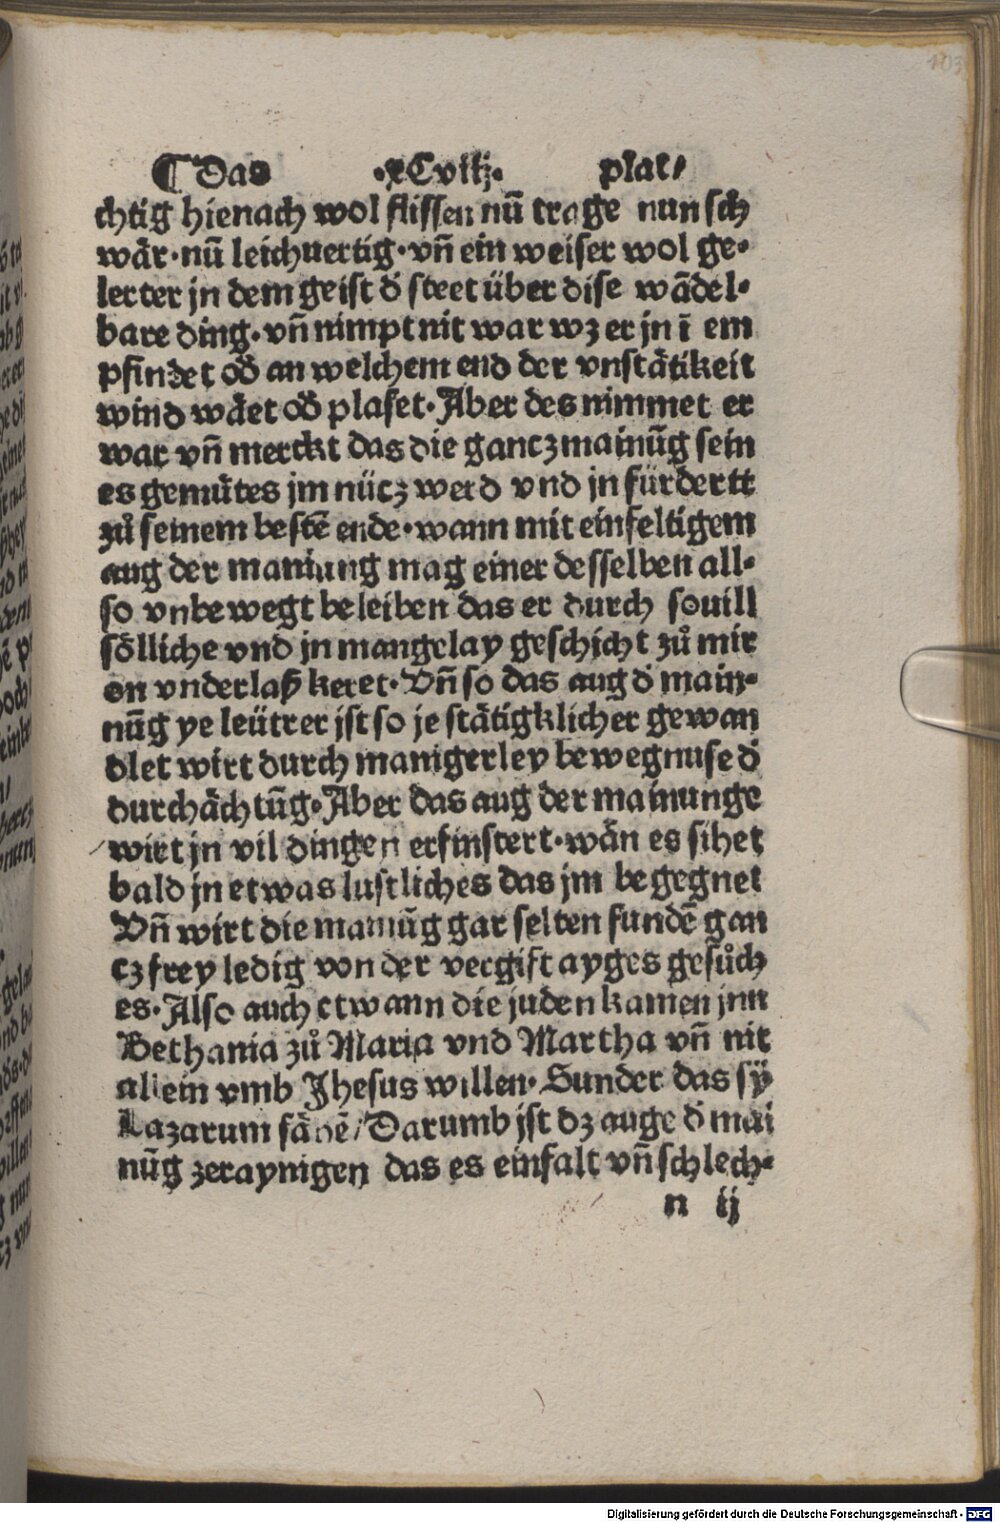 ¶ Das ·xCviij· plat/
chtig hienach wol flissen nū trage nun sch
wār·nū leichuertig·vñ ein weiser wol ge⸗
lerter jn dem geist d̄ steet über dise wādel⸗
bare ding·vñ nimpt nit war wz er jn ī em
pfindet od̄ an welchem end der vnstātikeit
wind wāet od̄ plaset·Aber des nimmet er
war vñ merckt das die gancz mainūg sein
es gemūtes jm nücz werd vnd jn fürdertt
zů seinem bestē ende·wann mit einfeltigem
aug der maniung mag einer desselben all⸗
so vnbewegt beleiben das er durch souill
sölliche vnd jn mangelay geschicht zů mir
on vnderlaß keret·Vñ so das aug d̄ main⸗
nūg ye leütrer jst so je stātigklicher gewan
dlet wirt durch manigerley bewegnuse d̄
durchāchtūg·Aber das aug der mainunge
wirt jn vil dingen erfinstert·wān es sihet
bald jn etwas lustliches das jm begegnet
Vñ wirt die mainūg gar selten fundē gan
cz frey ledig von der vergift ayges gesůch
es·Also auch etwann die juden kamen jnn
Bethania zů Maria vnd Martha vñ nit
allein vmb Jhesus willen·Sunder das sÿ
Lazarum sāhē/Darumb jst dz auge d̄ mai
nūg zeraynigen das es einfalt vñ schlech⸗
n ij
103
Digitalisierung gefördert durch die Deutsche Forschungsgemeinschaft - DFG